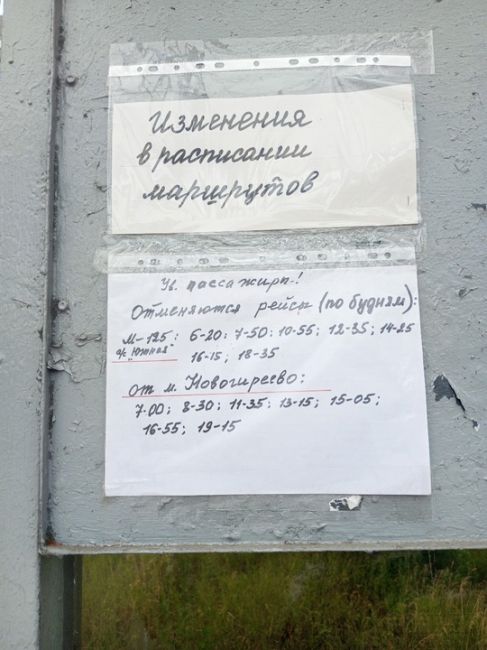 Изменения
в расписании
маршрутов
Ув. пассажиры!
Отменяются рейсы (по будням):
М-125: 6-20; 7-50; 10-55; 12-35; 14-25
"Южная" 16-15; 18-35
от м. Новогиреево:
7-00; 8-30; 11-35; 13-15; 15-05;
16-55; 19-15